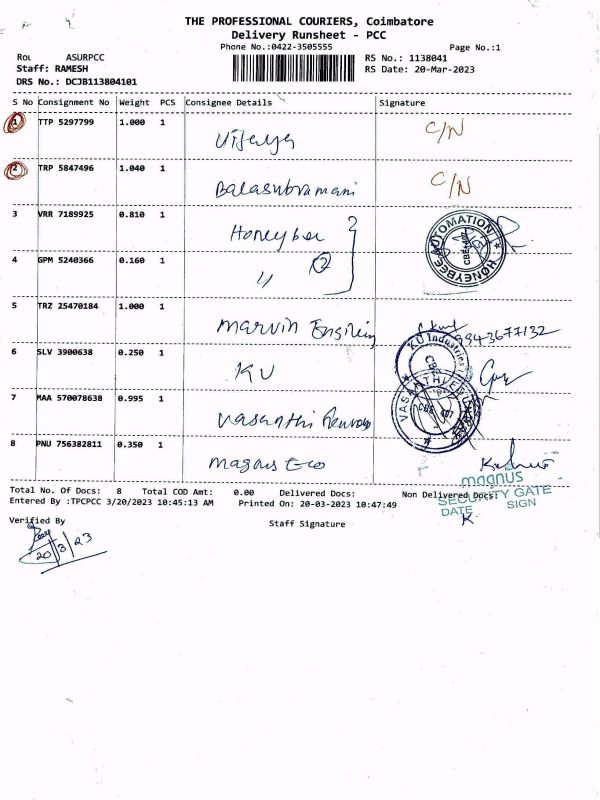 THE PROFESSIONAL COURIERS, Coimbatore
Delivery Runsheet - PCC
Phone No.:0422-3505555
Page No.:1
ASURPCC
RS No.: 1138041
Staff: RAMESH
RS Date: 20-Mar-2023
DRS No.: DCJB113804101
S No Consignment No Weight PCS Consignee Details Signature
1 TTP 5297799 1.000 1 Vijaya C/N
2 TRP 5847496 1.040 1 Balasubramani C/N
3 VRR 7189925 0.810 1 Honeybee
HONEYBEE AUTOMATION
4 GPM 5240366 0.160 1 2
5 TRZ 25470184 1.000 1 Marvin 9843677132
6 SLV 3900638 0.250 1 KU
KU Industries
7 MAA 570078638 0.995 1 Vasanthi
VASANTHI
CBE
8 PNU 756382811 0.350 1 Magnus
magnus
SECURITY GATE
DATE SIGN
Total No. Of Docs: 8 Total COD Amt: 0.00 Delivered Docs: Non Delivered Docs:
Entered By :TPCPCC 3/20/2023 10:45:13 AM Printed On: 20-03-2023 10:47:49
Verified By
Staff Signature
20/3/23